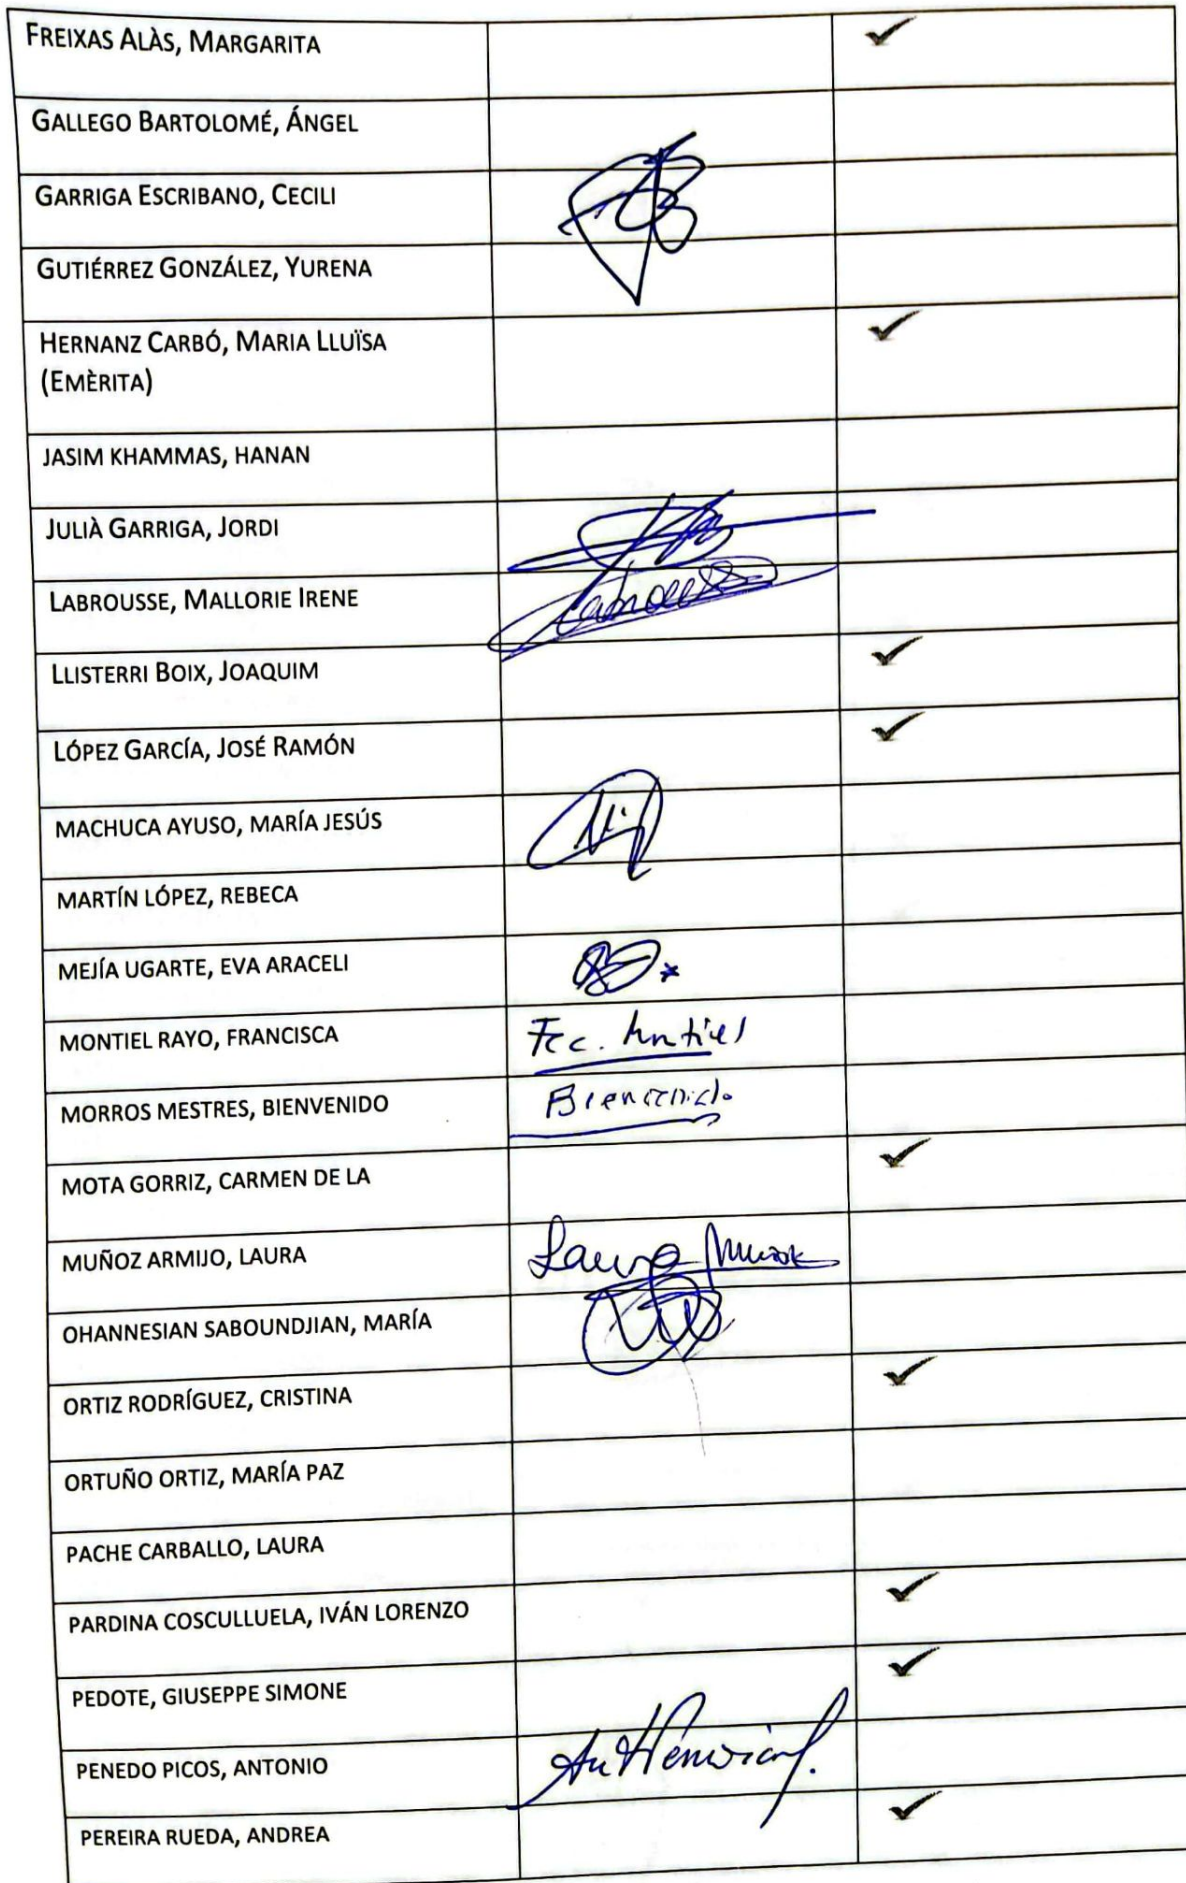 FREIXAS ALÀS, MARGARITA ✓
GALLEGO BARTOLOMÉ, ÁNGEL
GARRIGA ESCRIBANO, CECILI
GUTIÉRREZ GONZÁLEZ, YURENA
HERNANZ CARBÓ, MARIA LLUÏSA ✓
(EMÈRITA)
JASIM KHAMMAS, HANAN
JULIÀ GARRIGA, JORDI
LABROUSSE, MALLORIE IRENE Labrousse
LLISTERRI BOIX, JOAQUIM ✓
LÓPEZ GARCÍA, JOSÉ RAMÓN ✓
MACHUCA AYUSO, MARÍA JESÚS
MARTÍN LÓPEZ, REBECA
MEJÍA UGARTE, EVA ARACELI
MONTIEL RAYO, FRANCISCA Fcc. Montiel
MORROS MESTRES, BIENVENIDO Bienvenido
MOTA GORRIZ, CARMEN DE LA ✓
MUÑOZ ARMIJO, LAURA Laura Muñoz
OHANNESIAN SABOUNDJIAN, MARÍA
ORTIZ RODRÍGUEZ, CRISTINA ✓
ORTUÑO ORTIZ, MARÍA PAZ
PACHE CARBALLO, LAURA
PARDINA COSCULLUELA, IVÁN LORENZO ✓
PEDOTE, GIUSEPPE SIMONE ✓
PENEDO PICOS, ANTONIO
PEREIRA RUEDA, ANDREA ✓